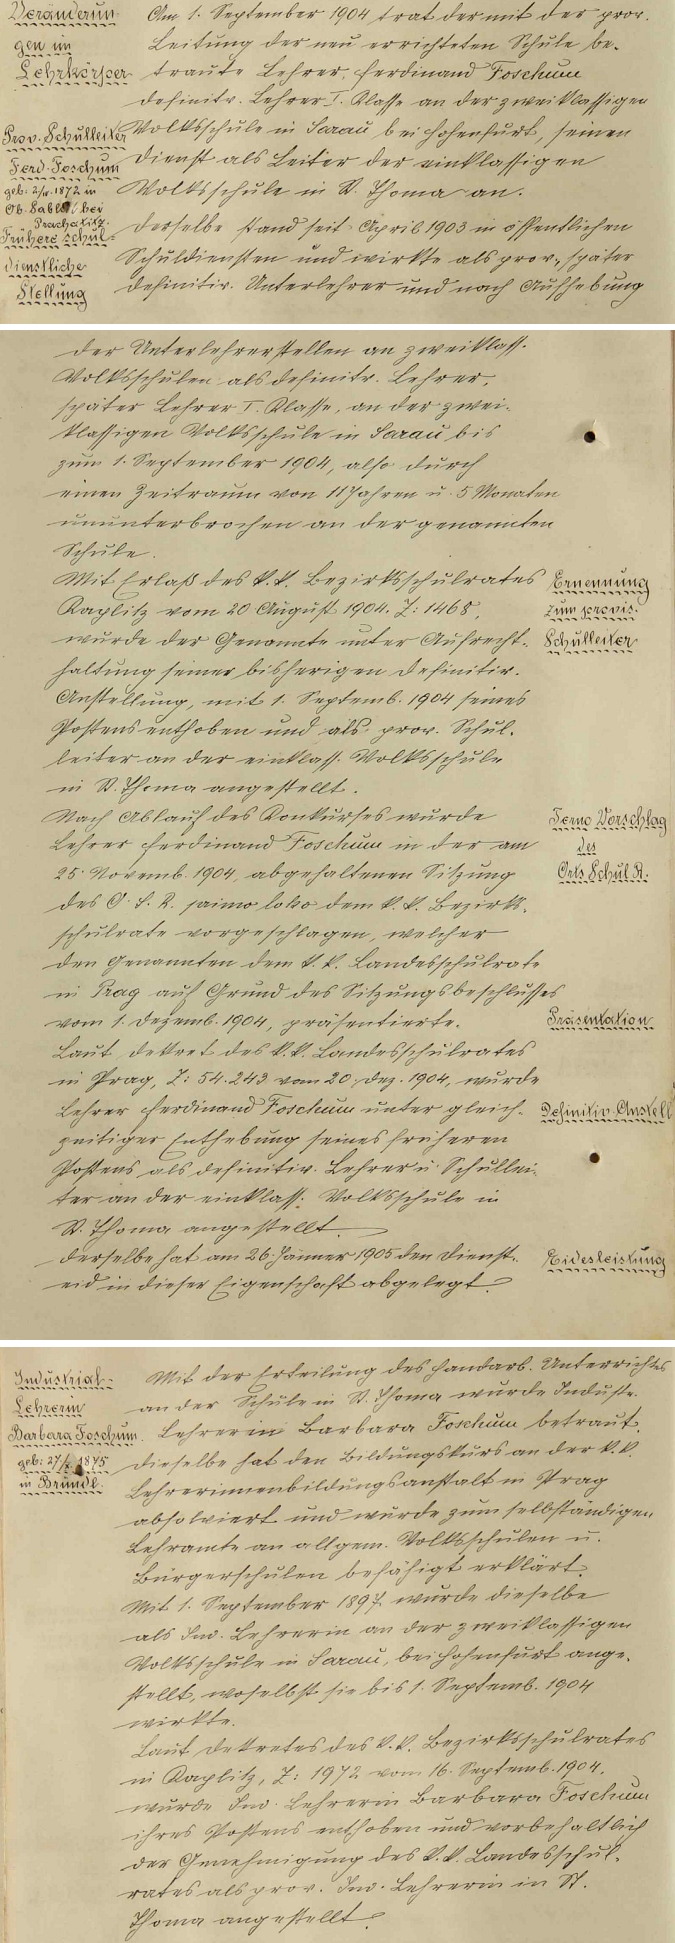 Veränderun-
gen im
Lehrkörper
Am 1. September 1904 trat der mit der prov.
Leitung der neu errichteten Schule be-
traute Lehrer, Ferdinand Foschum
definitv. Lehrer I. Klasse an der zweiklassigen
Volksschule in Sarau bei Hohenfurt, seinen
Dienst als Leiter der einklassigen
Volksschule in St. Thoma an.
Prov. Schulleiter
Ferd. Foschum
geb: 1872 in
Ob. Sablat bei
Prachatitz.
Frühere schul-
dienstliche
Stellung
Derselbe stand seit April 1903 in öffentlichen
Schuldiensten und wirkte als prov., später
definitiv. Unterlehrer und nach Aufhebung
der Unterlehrerstellen an zweiklass.
Volksschulen als definitv. Lehrer,
später Lehrer I. Klasse, an der zwei-
klassigen Volksschule in Sarau, bis
zum 1. September 1904, also durch
einen Zeitraum von 11 Jahren u. 5 Monaten
ununterbrochen an der genannten
Schule.
Mit Erlaß des k. k. Bezirksschulrates
Kaplitz vom 20 August 1904. Z: 1468,
wurde der Genannte unter Aufrecht-
haltung seiner bisherigen definitiv.
Anstellung, mit 1. Septemb. 1904 seines
Postens enthoben und als prov. Schul-
leiter an der einklass. Volksschule
in St. Thoma angestellt.
Ernennung
zum provis.
Schulleiter
Nach Ablauf des Konkurses wurde
Lehrer Ferdinand Foschum in der am
25. Novemb. 1904, abgehaltenen Sitzung
des O. S. R. primo loko dem k. k. Bezirks-
schulrate vorgeschlagen, welcher
den Genannten dem k. k. Landesschulrate
in Prag auf Grund des Sitzungsbeschlusses
vom 1. Dezemb. 1904, präsentierte.
Terno Vorschlag
des
Orts Schul R.
Präsentation
Laut Dekret des k. k. Landesschulrates
in Prag, Z: 54.243 vom 20. Dez. 1904, wurde
Lehrer Ferdinand Foschum unter gleich-
zeitiger Enthebung seines früheren
Postens als definitiv. Lehrer u. Schullei-
ter an der einklass. Volksschule in
St. Thoma angestellt.
Definitiv. Anstell
Derselbe hat am 26. Jänner 1905 den Dienst-
eid in dieser Eigenschaft abgelegt.
Eidesleistung
Industrial-
Lehrerin
Barbara Foschum.
geb: 1875
in Bründl.
Mit der Erteilung des Handarb. Unterrichtes
an der Schule in St. Thoma wurde Industr.
Lehrerin Barbara Foschum betraut.
Dieselbe hat den Bildungskurs an der k. k.
Lehrerinnenbildungsanstalt in Prag
absolviert und wurde zum selbständigen
Lehramte an allgem. Volksschulen u.
Bürgerschulen befähigt erklärt.
Mit 1. September 1897 wurde dieselbe
als Ind. Lehrerin an der zweiklassigen
Volksschule in Sarau, bei Hohenfurt ange-
stellt, woselbst sie bis 1. Septemb. 1904
wirkte.
Laut Dekretes des k. k. Bezirksschulrates
in Kaplitz, Z: 1972 vom 16. Septemb. 1904,
wurde Ind. Lehrerin Barbara Foschum
ihres Postens enthoben und vorbehaltlich
der Genehmigung des k. k. Landesschul-
rates als prov. Ind. Lehrerin in St.
Thoma angestellt.